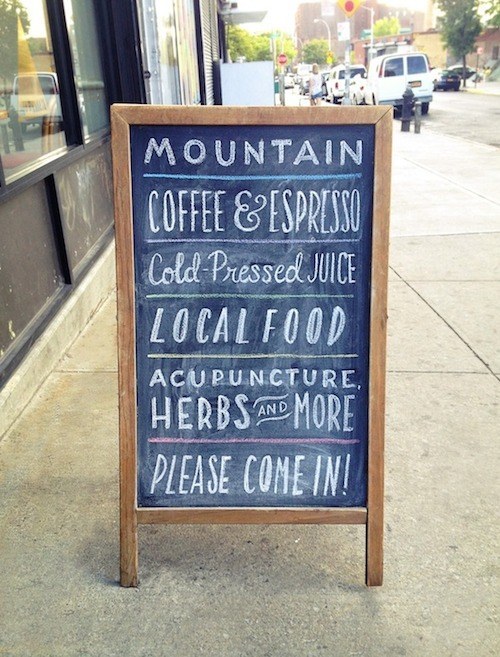 MOUNTAIN
COFFEE & ESPRESSO
Cold-Pressed JUICE
LOCAL FOOD
ACUPUNCTURE,
HERBS AND MORE
PLEASE COME IN!